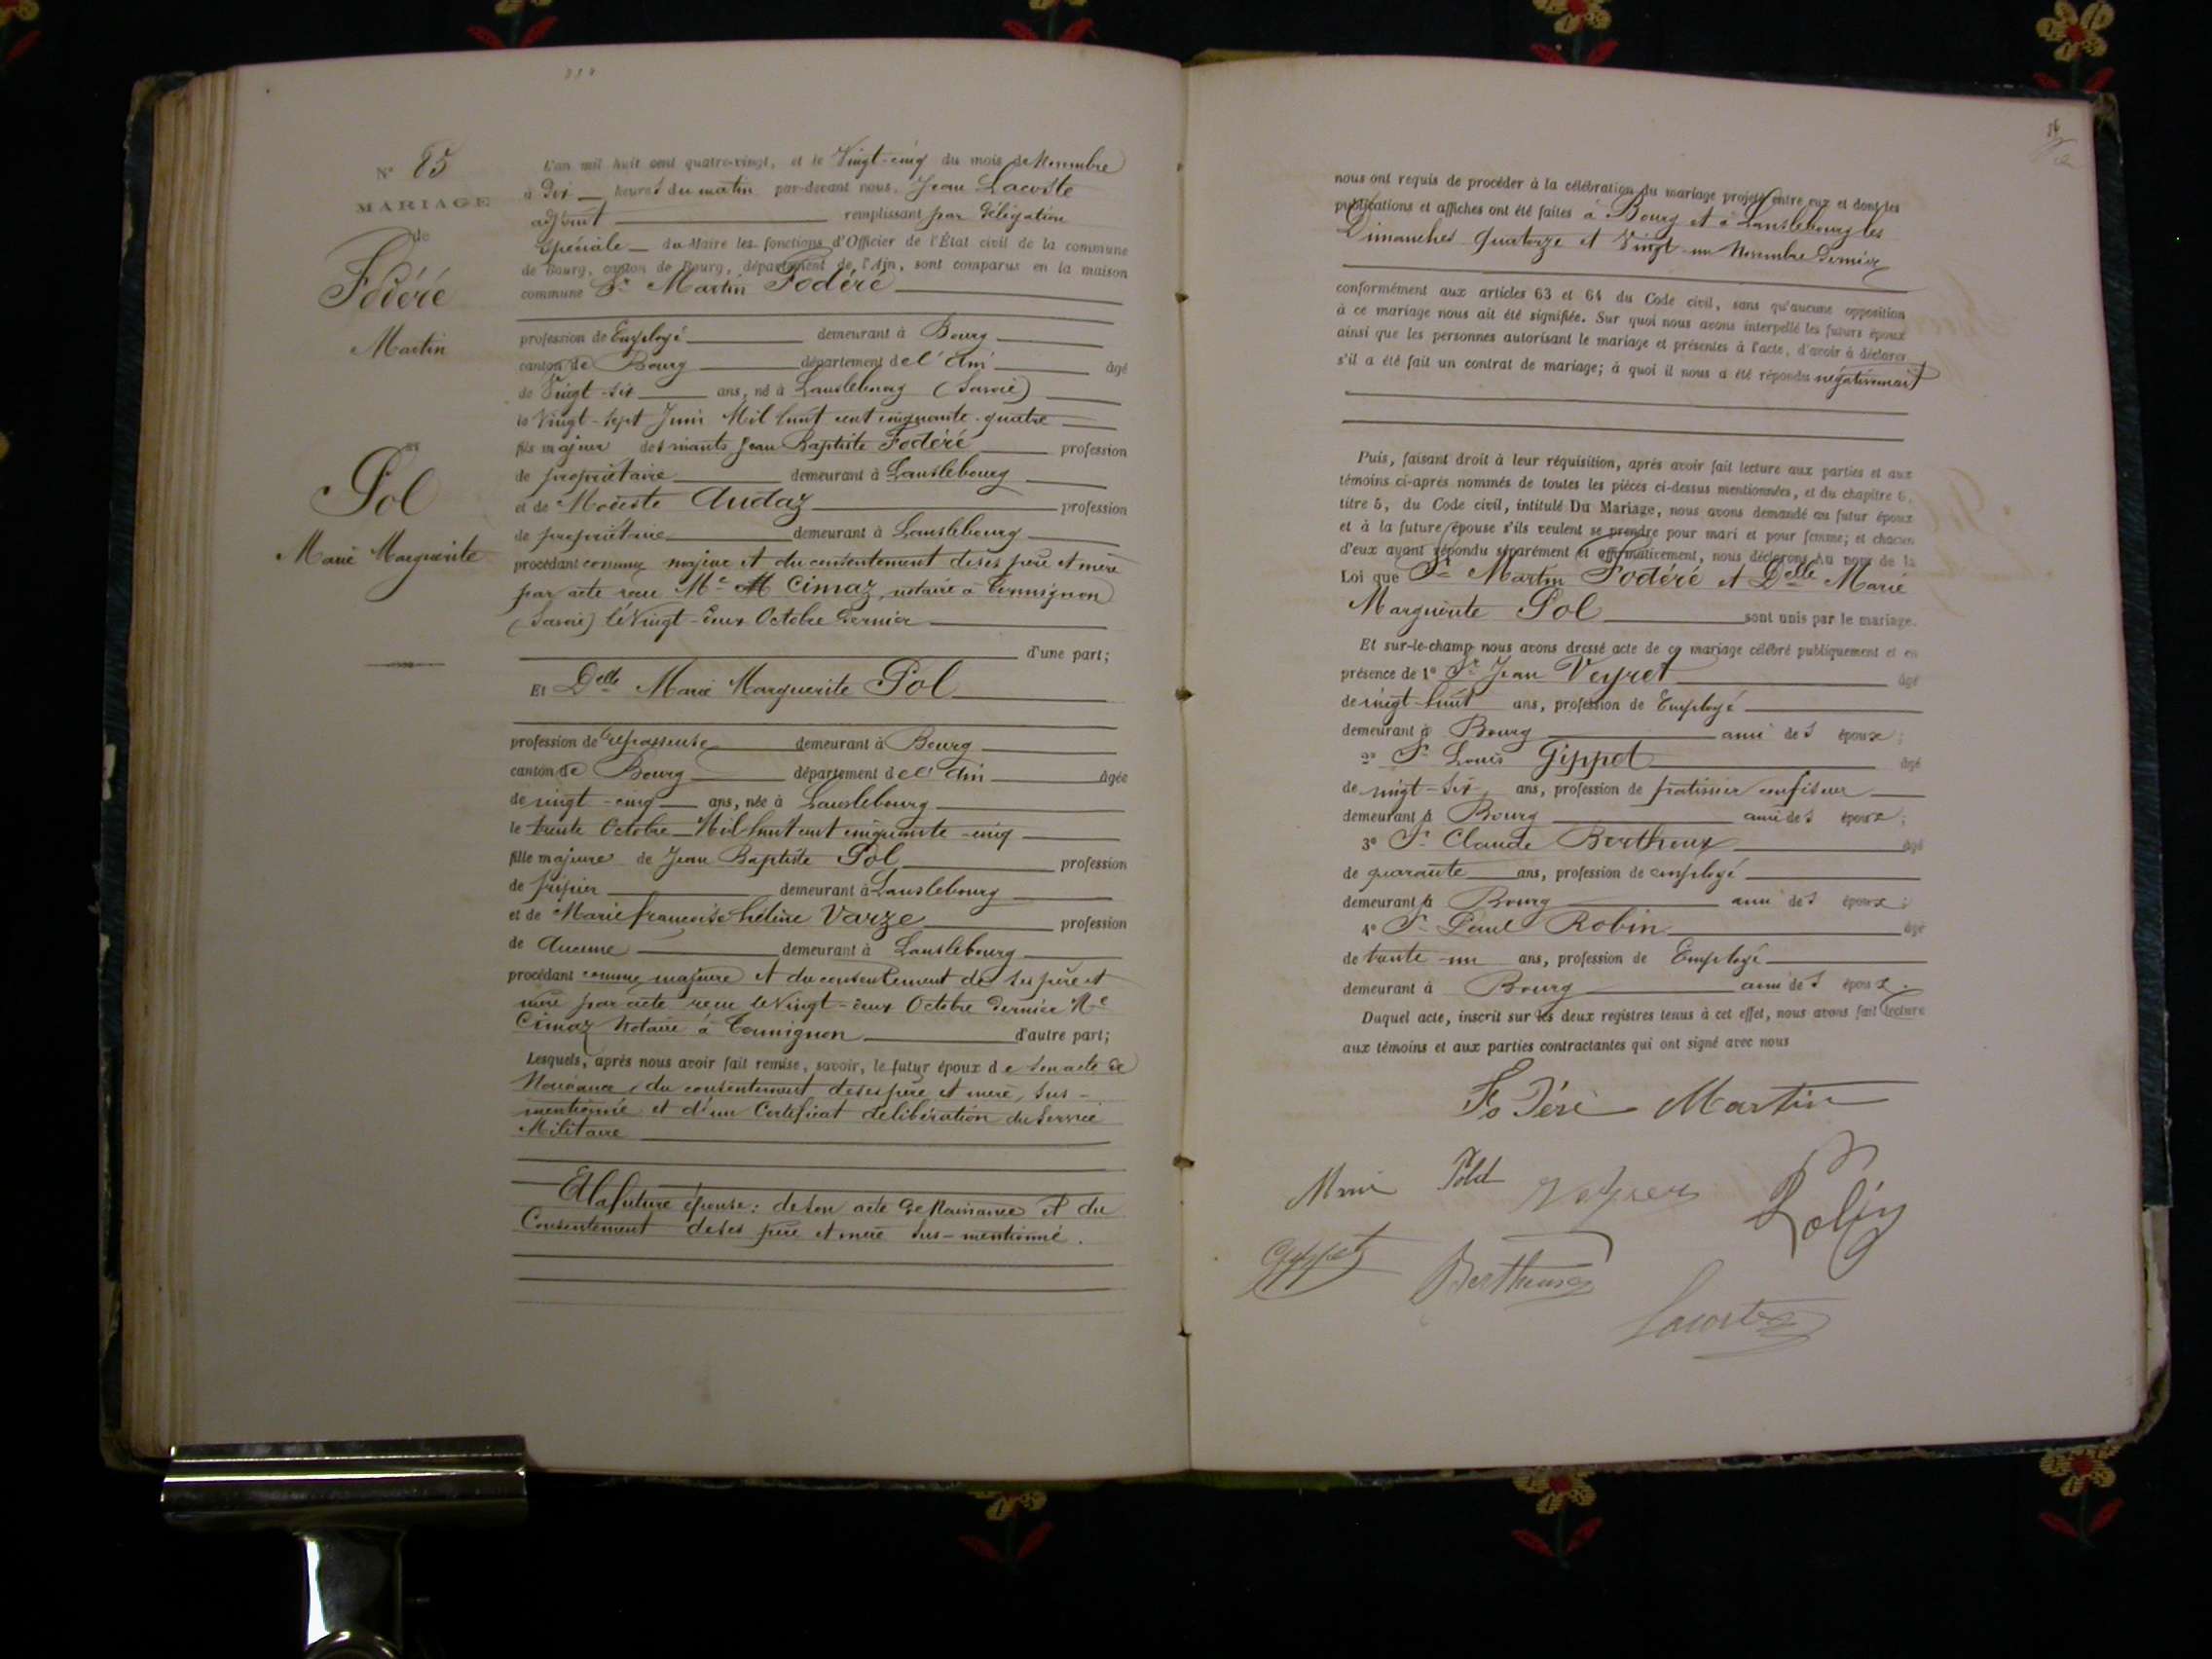 N° 85
MARIAGE
de
Fodéré
Martin
et
Pol
Marie Marguerite
L'an mil huit cent quatre-vingt, et le Vingt-cinq du mois de Novembre
à Dix heures du matin par-devant nous, Jean Lacoste
adjoint remplissant par délégation
Spéciale du Maire les fonctions d'Officier de l'État civil de la commune
de Bourg, canton de Bourg, département de l'Ain, sont comparus en la maison
commune Sr Martin Fodéré
profession de Employé demeurant à Bourg
canton de Bourg département de l'Ain âgé
de Vingt-six ans, né à Lanslebourg (Savoie)
le Vingt-sept Juin Mil huit cent cinquante-quatre
fils majeur des mariés Jean Baptiste Fodéré profession
de propriétaire demeurant à Lanslebourg
et de Modeste Audaz profession
de propriétaire demeurant à Lanslebourg
procédant comme majeur et du consentement de ses père et mère
par acte reçu Me Cimaz, notaire à Termignon
(Savoie) le Vingt-deux Octobre dernier
d'une part;
Et Delle Marie Marguerite Pol
profession de repasseuse demeurant à Bourg
canton de Bourg département de l'Ain âgée
de vingt-cinq ans, née à Lanslebourg
le trente Octobre Mil huit cent cinquante-cinq
fille majeure de Jean Baptiste Pol profession
de fripier demeurant à Lanslebourg
et de Marie françoise hélène Varze profession
de Aucune demeurant à Lanslebourg
procédant comme majeure et du consentement de ses père et
mère par acte reçu le Vingt-deux Octobre dernier Me
Cimaz Notaire à Termignon d'autre part;
Lesquels, après nous avoir fait remise, savoir, le futur époux de son acte de
Naissance, du consentement de ses père et mère, sus-
mentionné et d'un Certificat de libération du Service
Militaire
Et la future épouse: de son acte de Naissance et du
Consentement de ses père et mère sus-mentionné.
nous ont requis de procéder à la célébration du mariage projeté entre eux et dont les
publications et affiches ont été faites à Bourg et à Lanslebourg les
Dimanches Quatorze et Vingt-un Novembre dernier
conformément aux articles 63 et 64 du Code civil, sans qu'aucune opposition
à ce mariage nous ait été signifiée. Sur quoi nous avons interpellé les futurs époux
ainsi que les personnes autorisant le mariage et présentes à l'acte, d'avoir à déclarer
s'il a été fait un contrat de mariage; à quoi il nous a été répondu négativement
Puis, faisant droit à leur réquisition, après avoir fait lecture aux parties et aux
témoins ci-après nommés de toutes les pièces ci-dessus mentionnées, et du chapitre 6,
titre 5, du Code civil, intitulé Du Mariage, nous avons demandé au futur époux
et à la future épouse s'ils veulent se prendre pour mari et pour femme; et chacun
d'eux ayant répondu séparément et affirmativement, nous déclarons Au nom de la
Loi que Sr Martin Fodéré et Delle Marie
Marguerite Pol sont unis par le mariage.
Et sur-le-champ nous avons dressé acte de ce mariage célébré publiquement et en
présence de 1° Sr Jean Veyret âgé
de vingt-huit ans, profession de Employé
demeurant à Bourg ami des époux;
2° Sr Louis Gippet âgé
de vingt-six ans, profession de patissier confiseur
demeurant à Bourg ami des époux;
3° Sr Claude Bertheux âgé
de quarante ans, profession de employé
demeurant à Bourg ami des époux;
4° Sr Paul Robin âgé
de trente-un ans, profession de Employé
demeurant à Bourg ami des époux.
Duquel acte, inscrit sur les deux registres tenus à cet effet, nous avons fait lecture
aux témoins et aux parties contractantes qui ont signé avec nous
Fodéré Martin
Marie Pol Veyret Robin
Gippet Bertheux
Lacoste